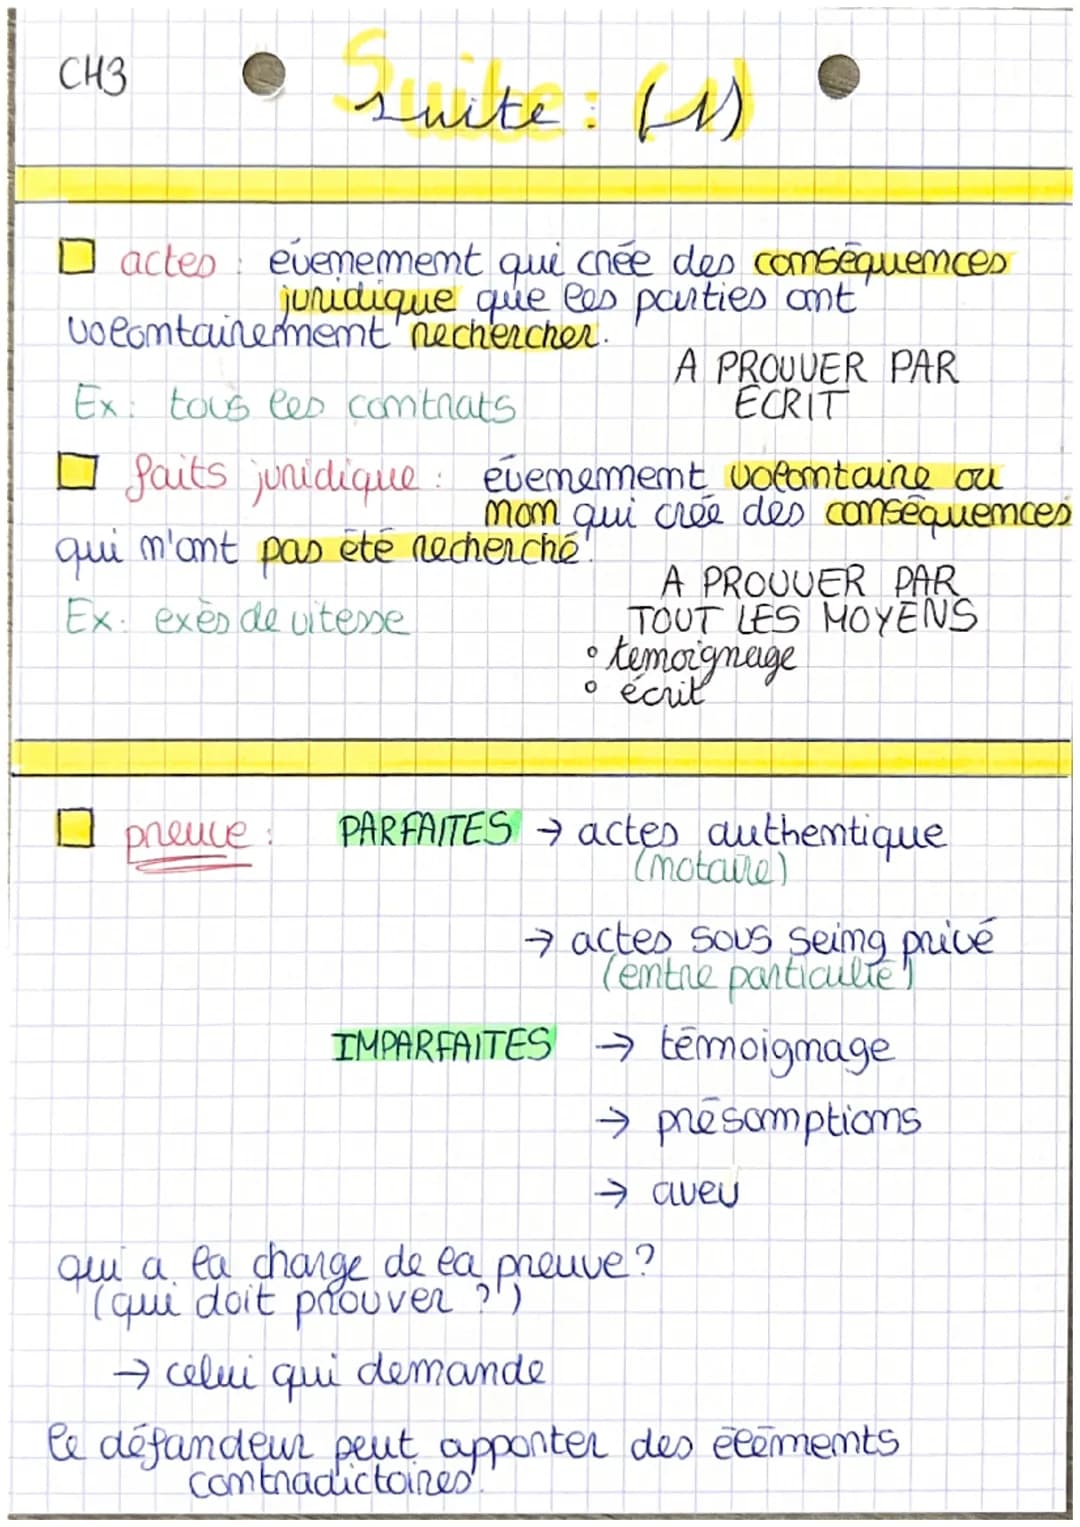 CH3
Suite : (1)
actes : évenemment qui crée des conséquences
juridique que les parties ont
volontairemment rechercher.
A PROUVER PAR
ECRIT
Ex : tous les contrats
faits juridique : évenemment volontaire ou
non qui crée des conséquences
qui n'ont pas été recherché.
A PROUVER PAR
TOUT LES MOYENS
Ex : exès de vitesse
° temoignage
° écrit
preuve : PARFAITES → actes authentique
(notaire)
→ actes sous seing privé
(entre particulié)
IMPARFAITES → témoignage
→ présomptions
→ aveu
qui a la charge de la preuve ?
(qui doit prouver ?)
→ celui qui demande
le défandeur peut apporter des éléments
contradictoires.